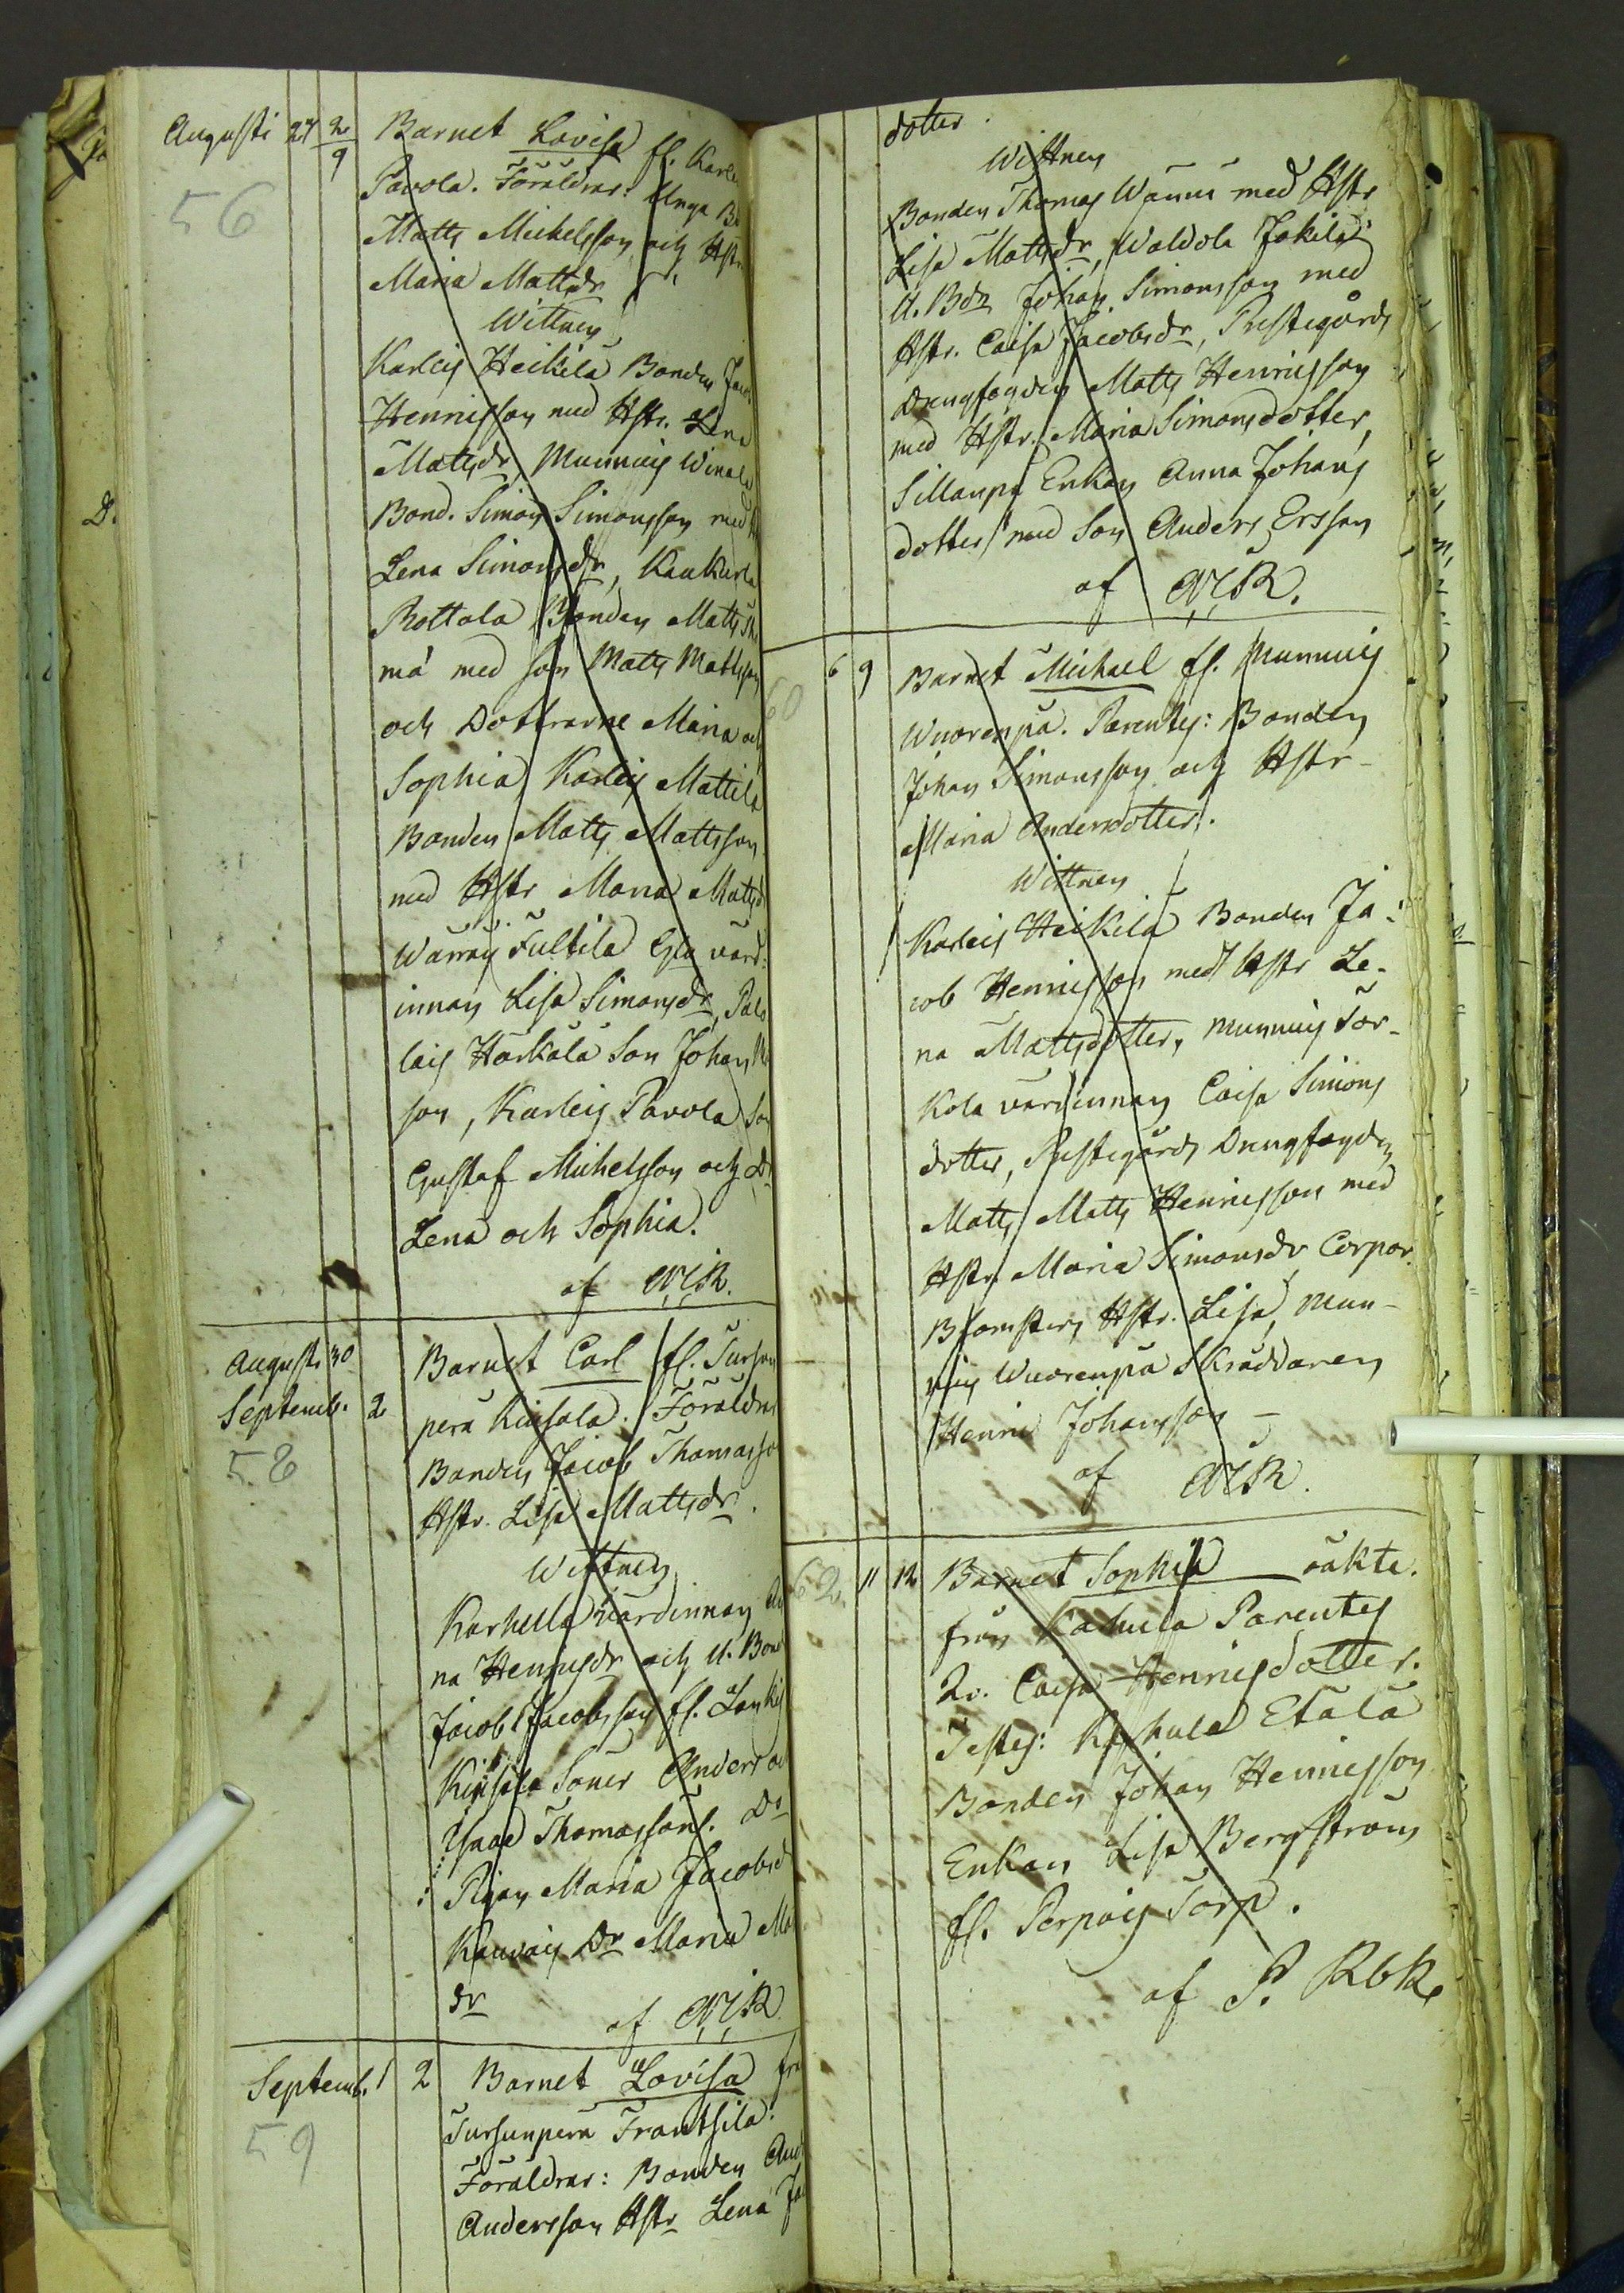 Augusti 27 2/9 Barnet Lovisa fl. Karl
56
Pavola. Föräldrar: Unga B
Matts Michelsson och Hstr
Maria Mattsdr
Wittnen
Karleis Heikilä Bonden Jac
Henricsson med Hstr. Lena
Mattsdr, Munnuis Winala
Bond. Simon Simonsson med
Lena Simonsdr, Kaukurla
Rottola Bonden Matts
må med son Matts Mattsson
och Dottrarne Maria och
Sophia Karleis Mattila
Bonden Matts Mattsson
med Hstr Maria Mattsd
Wärrÿ Tulkila värd:
innan Lisa Simonsdr, Palo
lais Härkälä Son Johan
son, Karleis Pavola Son
Gustaf Michelsson och D
Lena och Sophia.
af NCR.
Augusti 30
Septemb. 2 Barnet Carl fl. Tursun
58
perä Kinsala. Föräldrar
Bonden Jacob Thomasso
Hstr. Lisa Mattsdr.
Wittnen
Karhella värdinnan An
na Henricsdr och U. Bond
Jacob Jacobsson fl. Lankis
Kinsala Söner Anders oc
Isaac Thomassöns. Dr
Pigan Maria Jacobsd
Kauvais Dr Maria Ma
dr
af NCR
Septemb. 1 2 Barnet Lovisa frå
59
Tursunperä Frantsila.
Föräldrar: Bonden And
Andersson Hstr Lena Ja
dotter.
Wittnen
Bonden Thomas Wänni med Hstr
Lisa Mattsdr, Waldola Jakila
U. Bdn Johan Simonsson med
Hstr. Caisa Jacobsdr, Prestegårds
Drengfogden Matts Henricsson
med Hstr. Maria Simonsdotter,
Sillanpä Enkan Anna Johans
dotter med Son Anders Ersson
af NCR.
60 6 9 Barnet Michael fl. Munnuis
Wuorenpä. Parentes: Bonden
Johan Simonsson och Hstr
Maria Andersdotter.
Wittnen
Karleis Heikilä Bonden Ja-
cob Henricsson med Hstr Le-
na Mattsdotter, Munnuis Tör-
kola värdinnan Caisa Simons
dotter, Prestegårds Drengfogden
Matts Matts Henricsson med
Hstr Maria Simonsdr Corpor.
Blomsters Hstr. Lisa, Mun-
nuis Wuorenpä Skräddaren
Henric Johansson
af NCR.
62. 11 12 Barnet Sophia oäkta.
från Kahula Parentes
Qv. Caisa Henricsdotter.
Testes: Kahula Etälä
Bonden Johan Henricsson
Enkan Lisa Bergström
fl. Perpois Torp.
af P. RbK.